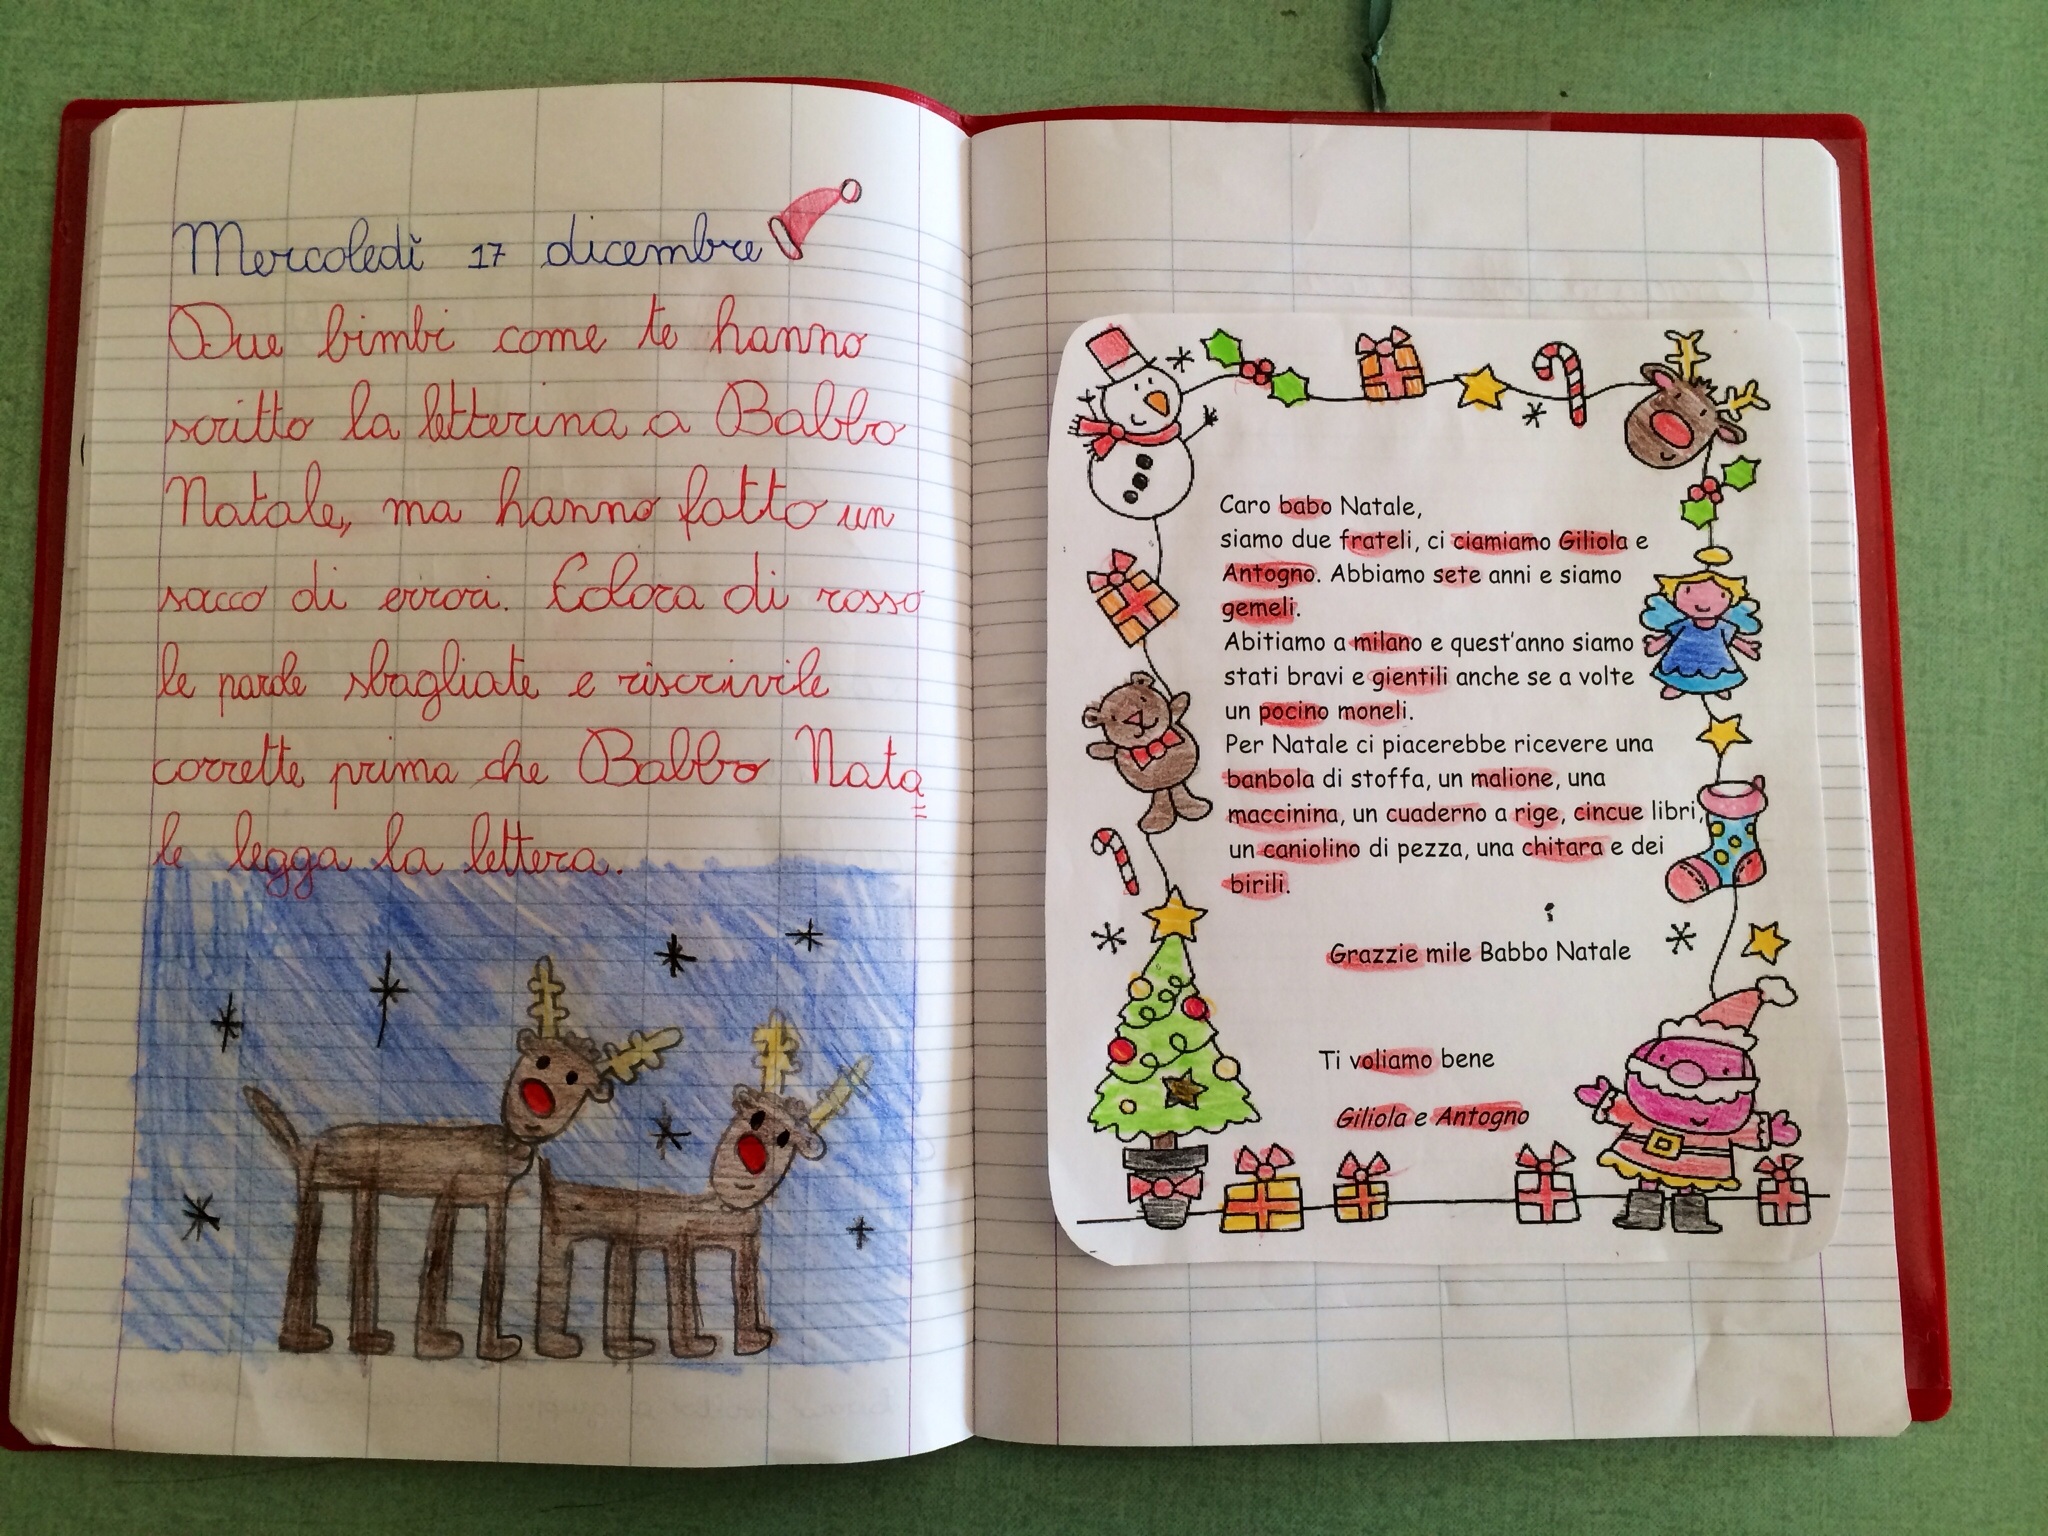 Mercoledì 17 dicembre
Due bimbi come te hanno
scritto la letterina a Babbo
Natale, ma hanno fatto un
sacco di errori. Colora di rosso
le parole sbagliate e riscrivile
corrette prima che Babbo Nata
le legga la lettera.
Caro babo Natale,
siamo due frateli, ci ciamiamo Giliola e
Antogno. Abbiamo sete anni e siamo
gemeli.
Abitiamo a milano e quest'anno siamo
stati bravi e gientili anche se a volte
un pocino moneli.
Per Natale ci piacerebbe ricevere una
banbola di stoffa, un malione, una
maccinina, un cuaderno a rige, cincue libri,
un caniolino di pezza, una chitara e dei
birili.
Grazzie mile Babbo Natale
Ti voliamo bene
Giliola e Antogno